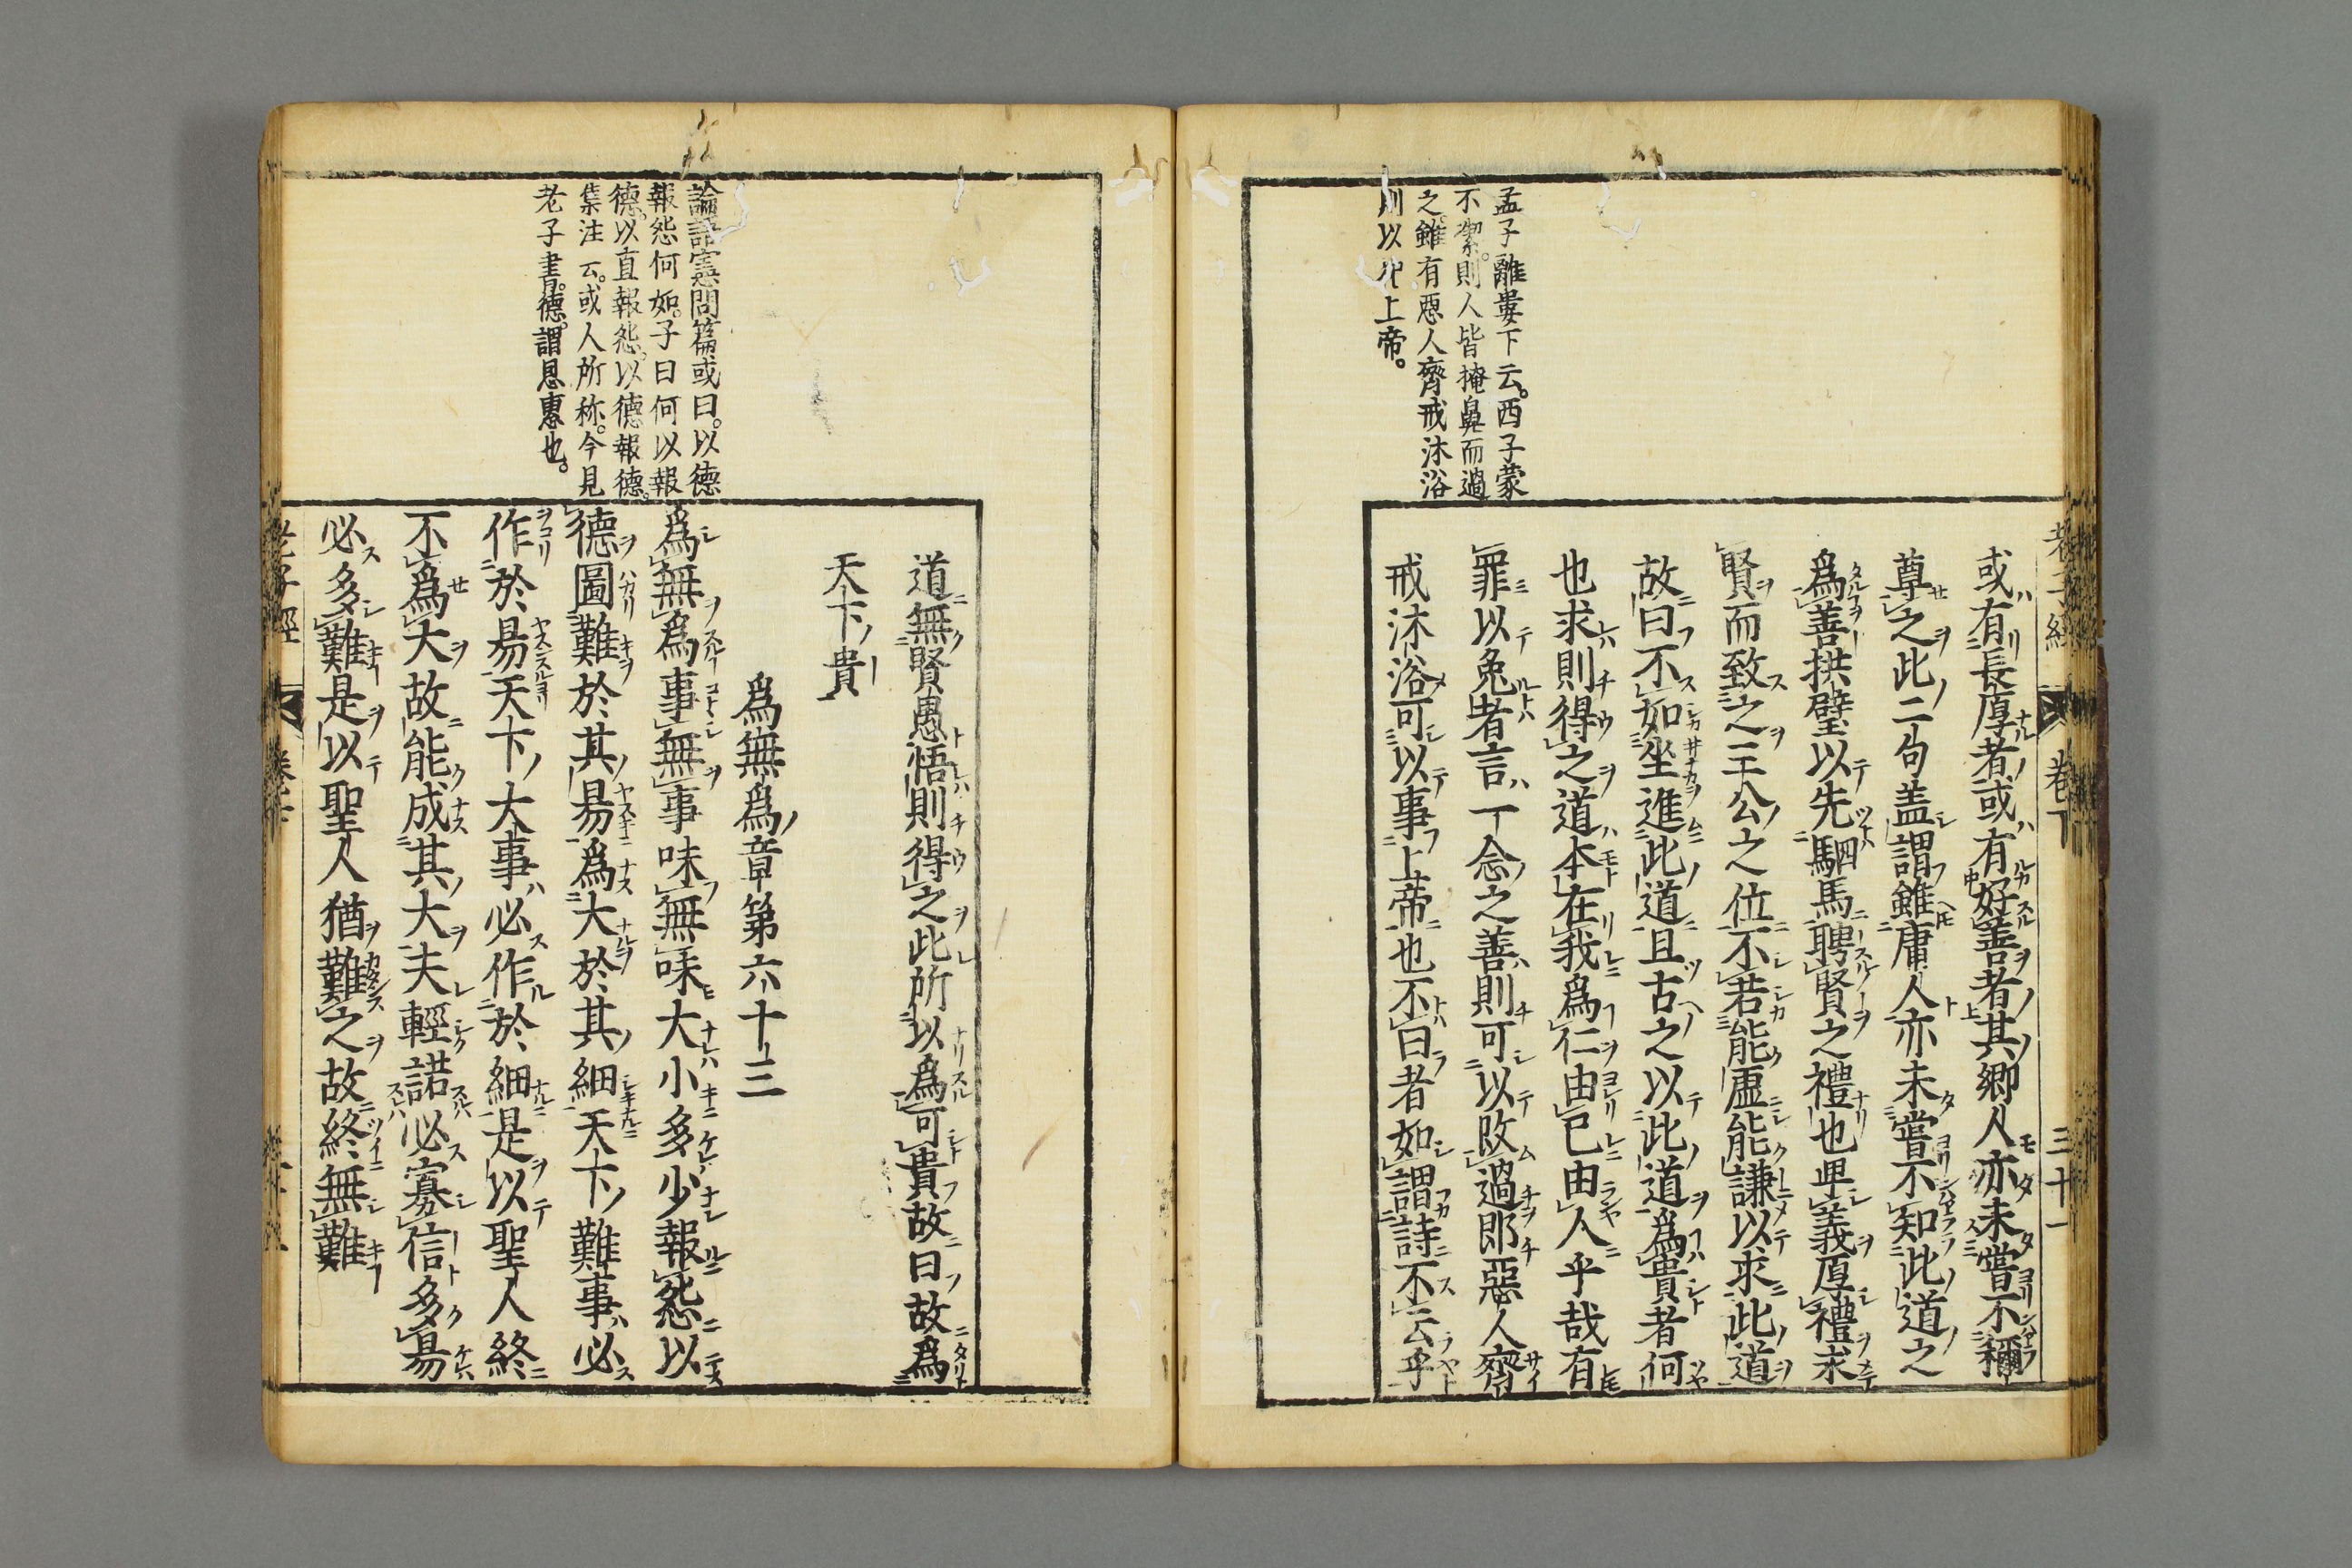 孟子離婁下云。西子蒙
不潔。則人皆掩鼻而過
之。雖有惡人齊戒沐浴
則以祀上帝。
老子經 卷下 三十一
或有長厚者或有好善者其鄉人亦未嘗不稱
尊之此二句盖謂雖庸人亦未嘗不知此道之
為善拱璧以先駟馬聘賢之禮也卑義厚禮求
賢而致之三公之位不若能虛能謙以求此道
故曰不如坐進此道且古之以此道為貴者何
也求則得之道本在我為仁由己由人乎哉有
罪以免者言一念之善則可以改過即惡人齊
戒沐浴可以事上帝也不曰者如謂詩不云乎
論語憲問篇或曰。以德
報怨何如。子曰何以報
德。以直報怨。以德報德。
集注云。或人所称。今見
老子書。德。謂恩惠也。
道無賢愚悟則得之此所以為可貴故曰故為
天下貴
為無為章第六十三
為無為事無事味無味大小多少報怨以
德圖難於其易為大於其細天下難事必
作於易天下大事必作於細是以聖人終
不為大故能成其大夫輕諾必寡信多易
必多難是以聖人猶難之故終無難
老子經